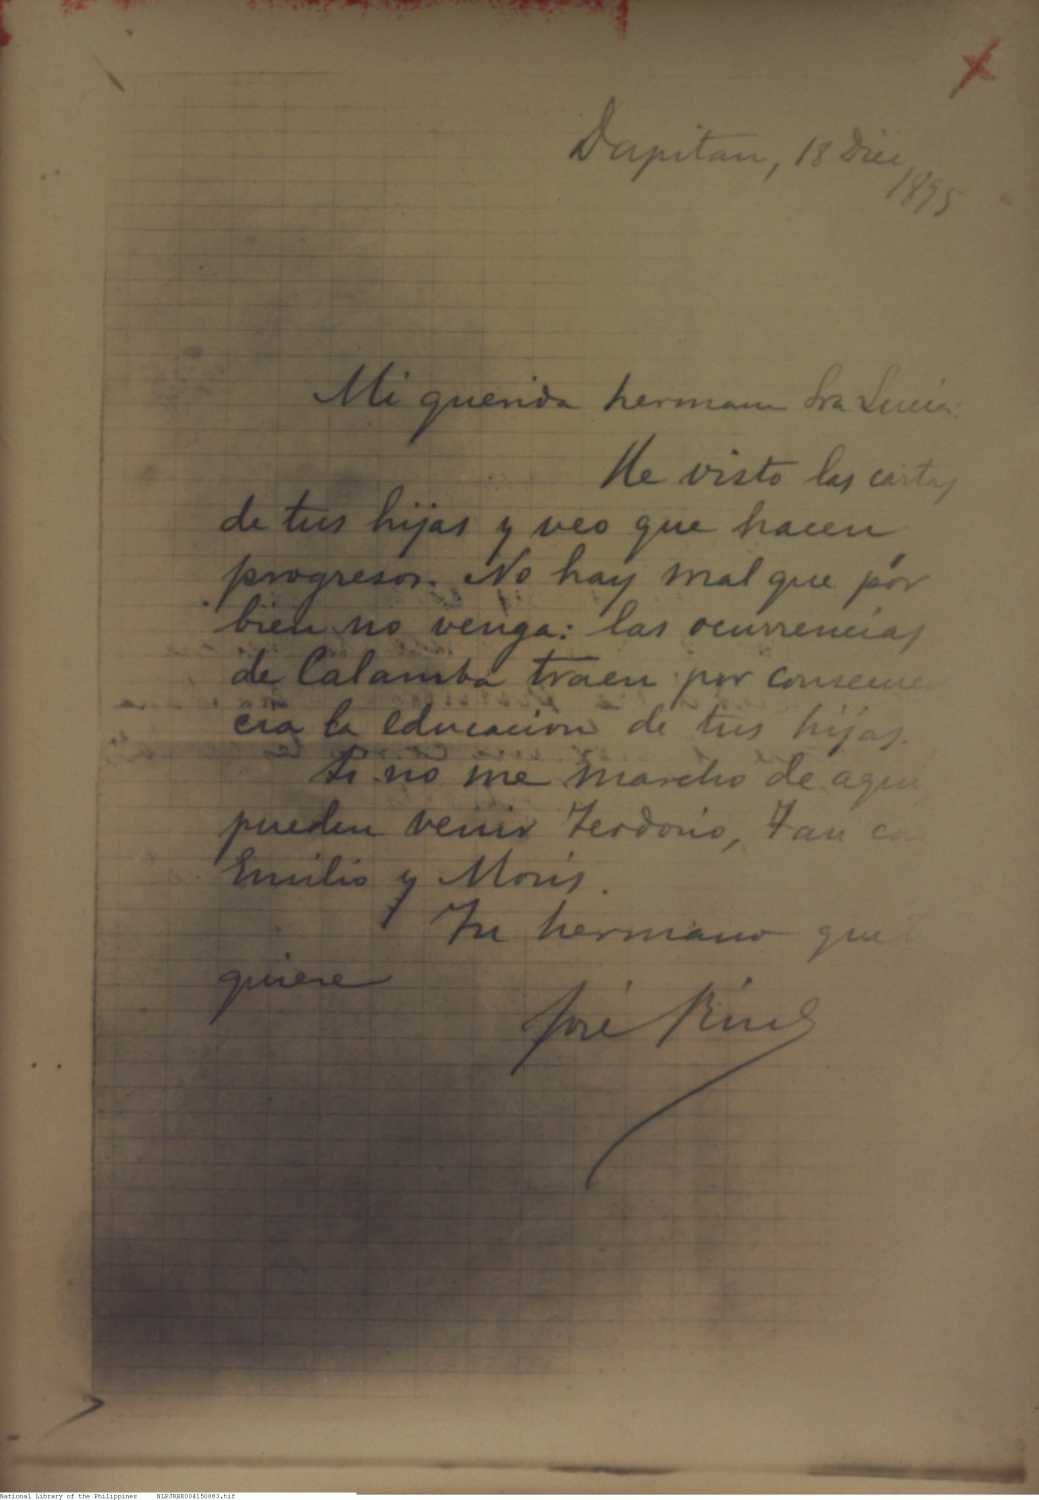 Dapitan, 18 Dic
1895
Mi querida hermana Sra Lucía:
He visto las cartas
de tus hijas y veo que hacen
progresos. No hay mal que por
bien no venga: las ocurrencias
de Calamba traen por consecue
cia la educacion de tus hijas.
Si no me marcho de aqui
pueden venir Teodosio, Tan
Emilio y Moris.
Tu hermano que
quiere
José Rizal
National Library of the Philippines NLPJRBE004150083.tif